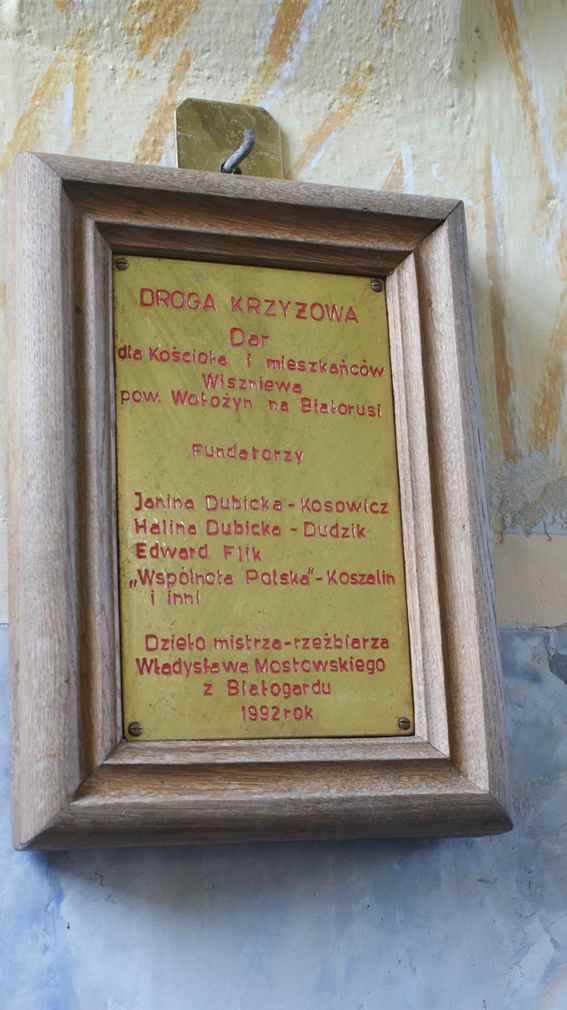 DROGA KRZYŻOWA
Dar
dla Kościoła i mieszkańców
Wiszniewa
pow. Wołożyn na Białorusi
Fundatorzy
Janina Dubicka-Kosowicz
Halina Dubicka - Dudzik
Edward Flik
„Wspólnota Polska"-Koszalin
i inni
Dzieło mistrza-rzeźbiarza
Władysława Mostowskiego
z Białogardu
1992rok